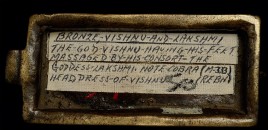 BRONZE-VISHNU-AND-LAKSHMI
THE-GOD-VISHNU-HAVING-HIS-FEET
MASSAGED BY-HIS-CONSORT-THE
GODDESS-LAKSHMI. NOTE COBRA (M-38)
HEADDRESS-OF-VISHNU (REBH)